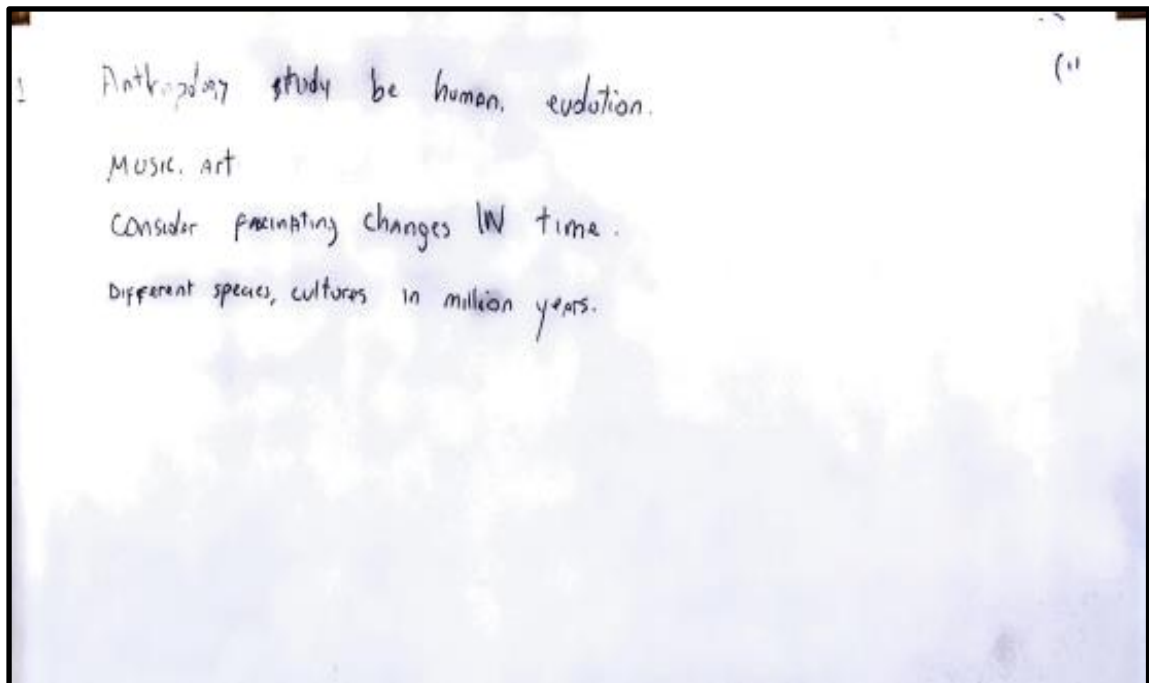 1 Anthropology study be human. evolution.
Music. Art
Consider fascinating changes IN time.
Different species, cultures in million years.